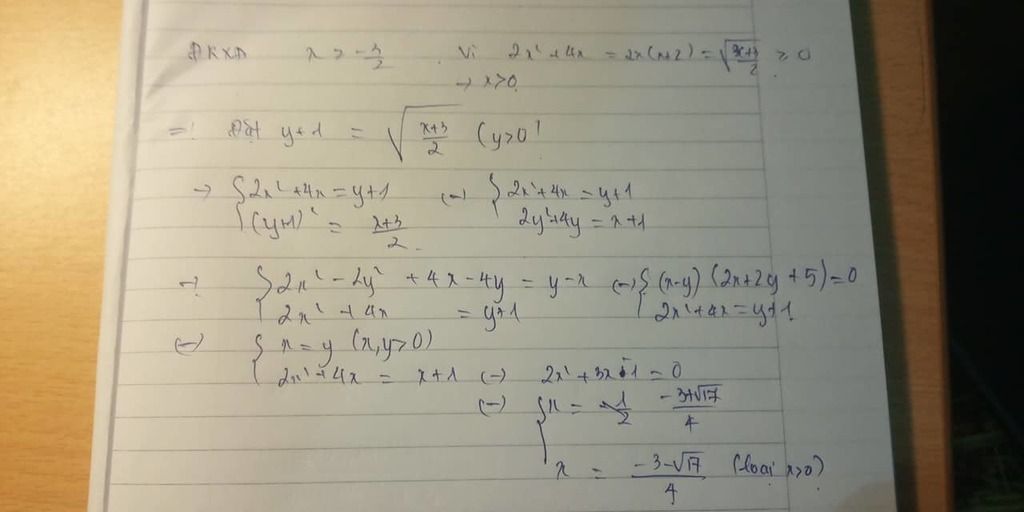 ĐKXĐ x > -3/2 . Vì 2x² + 4x = 2x(x+2) = √((x+3)/2) ≥ 0
→ x>0
=> Đặt y+1 = √((x+3)/2) (y>0)
→ { 2x²+4x = y+1 (-) { 2x²+4x = y+1
(y+1)² = (x+3)/2 . 2y²+4y = x+1
→ { 2x² - 2y² + 4x - 4y = y-x (-) { (x-y)(2x+2y+5)=0
2x² + 4x = y+1 2x²+4x = y+1
(-) { x = y (x,y>0)
2x²+4x = x+1 (-) 2x²+3x-1 = 0
(-) { x = (-3+√17)/4
x = (-3-√17)/4 (loại x>0)